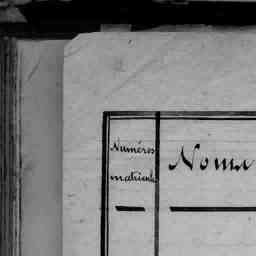 Numéros
matricule
Noms